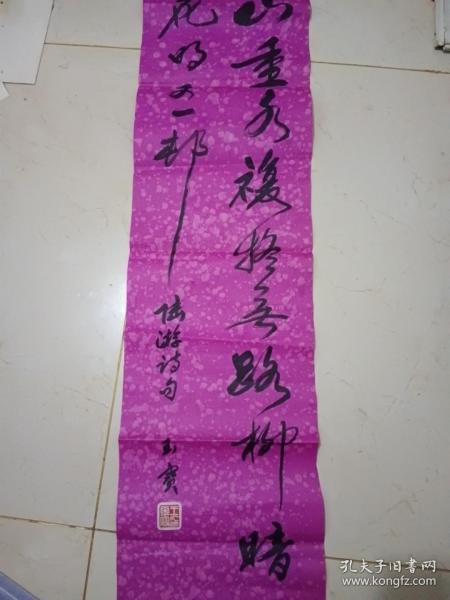 山重水複疑無路柳暗
花明又一邨
陆游诗句
玉寶
孔夫子旧书网
www.kongfz.com